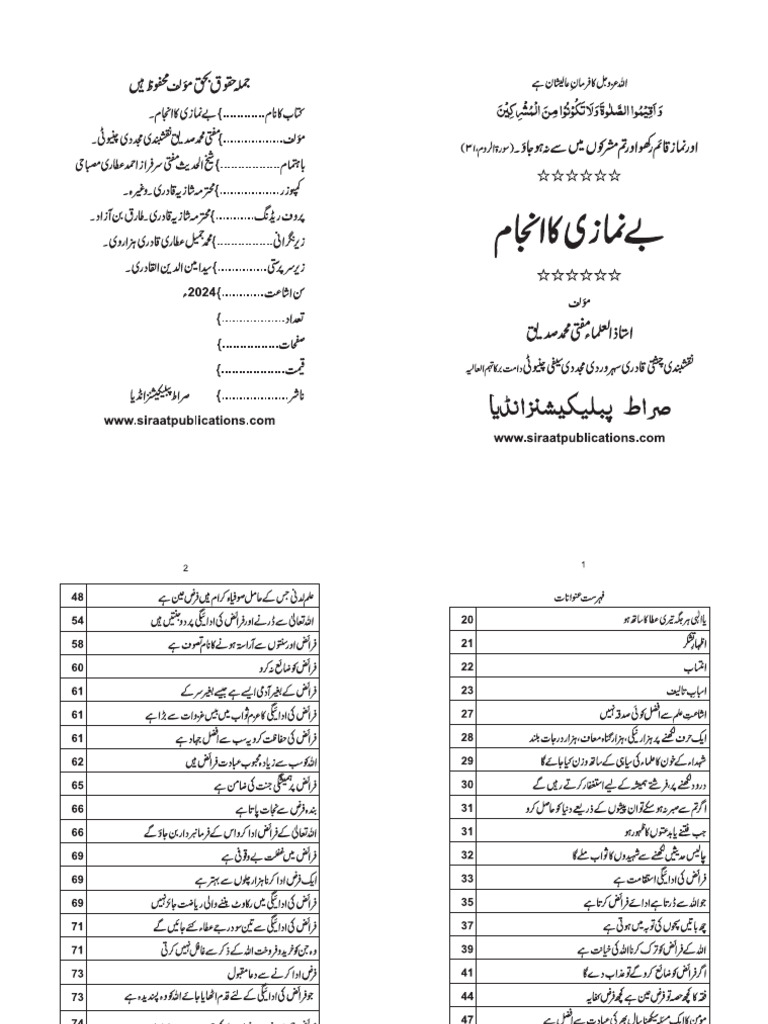 اللہ عزوجل کا فرمان عالیشان ہے
وَاَقِيْمُوا الصَّلٰوةَ وَلَا تَكُوْنُوْا مِنَ الْمُشْرِكِيْنَ
اور نماز قائم رکھو اور تم مشرکوں میں سے نہ ہو جاؤ۔(سورۃ الروم،۳۱)
☆☆☆☆☆☆
بے نمازی کا انجام
☆☆☆☆☆☆
مؤلف
استاذ العلماء مفتی محمد صدیق
نقشبندی چشتی قادری سہروردی مجددی سیفی چنیوٹی دامت برکاتہم العالیہ
صراط پبلیکیشنز انڈیا
www.siraatpublications.com
جملہ حقوق بحق مؤلف محفوظ ہیں
کتاب کا نام............{بے نمازی کا انجام۔
مؤلف.................{مفتی محمد صدیق نقشبندی مجددی چنیوٹی۔
باہتمام.................{شیخ الحدیث مفتی سرفراز احمد عطاری مصباحی
کمپوزر.................{محترمہ شازیہ قادری۔ وغیرہ۔
پروف ریڈنگ...........{محترمہ شازیہ قادری۔ طارق بن آزاد۔
زیر نگرانی...............{محمد جمیل عطاری قادری ہزاروی۔
زیر سرپرستی.............{سید امین الدین القادری۔
سن اشاعت............{2024ء
تعداد.................{
صفحات.................{
قیمت.................{
ناشر.................{ صراط پبلیکیشنز انڈیا
www.siraatpublications.com
1
فہرست عنوانات
یا الٰہی ہر جگہ تیری عطا کا ساتھ ہو 20
اظہار تشکر 21
انتساب 22
اسباب تالیف 23
اشاعت علم سے افضل کوئی صدقہ نہیں 27
ایک حرف لکھنے پر ہزار نیکی، ہزار گناہ معاف، ہزار درجات بلند 28
شہداء کے خون کا علماء کی سیاہی کے ساتھ وزن کیا جائے گا 29
درود لکھنے پر، فرشتے ہمیشہ کے لیے استغفار کرتے رہیں گے 30
اگر تم سے صبر نہ ہو سکے تو ان پیشوں کے ذریعے دنیا کو حاصل کرو 31
جب فتنے یا بدعتوں کا ظہور ہو 31
چالیس حدیثیں لکھنے سے شہیدوں کا ثواب ملے گا 32
فرائض کی ادائیگی استقامت ہے 33
جو اللہ سے ڈرتا ہے ادائے فرائض کرتا ہے 35
چھ باتیں سچوں کی توبہ میں ہوتی ہے 37
اللہ کے فرائض کو ترک کرنا اللہ کی خیانت ہے 39
اگر فرائض کو ضائع کرو گے تو عذاب دے گا 41
فقہ کا کچھ حصہ تو فرض عین ہے کچھ فرض کفایہ 44
مؤمن کا ایک مسئلہ سیکھنا سال بھر کی عبادت سے افضل ہے 47
2
علم لدنی جس کے حامل صوفیاء کرام میں فرض عین ہے 48
اللہ تعالیٰ سے ڈرنے اور فرائض کی ادائیگی پر دو جنتیں ہیں 54
فرائض اور سنتوں سے آراستہ ہونے کا نام تصوف ہے 58
فرائض کو ضائع نہ کرو 60
فرائض کے بغیر آدمی ایسے ہے جیسے بغیر سر کے 61
فرائض کی ادائیگی کا عزم ثواب میں بیس غزوات سے بڑا ہے 61
فرائض کی حفاظت کرو یہ سب سے افضل جہاد ہے 61
اللہ کو سب سے زیادہ محبوب عبادت فرائض ہیں 62
فرائض پر ہمیشگی جنت کی ضامن ہے 65
بندہ فرض سے نجات پاتا ہے 66
اللہ تعالیٰ کے فرائض ادا کرو اس کے فرمانبردار بن جاؤ گے 66
فرائض میں غفلت بے وقوفی ہے 69
ایک فرض ادا کرنا ہزار چلوں سے بہتر ہے 69
فرائض کی ادائیگی میں رکاوٹ بننے والی ریاضت جائز نہیں 69
فرائض کی ادائیگی سے تین سو درجے عطاء کئے جائیں گے 71
وہ جن کو خرید و فروخت اللہ کے ذکر سے غافل نہیں کرتی 71
فرض ادا کرنے سے دعا مقبول 73
جو فرائض کی ادائیگی کے لئے قدم اٹھایا جائے اللہ کو وہ پسندیدہ ہے 73
74